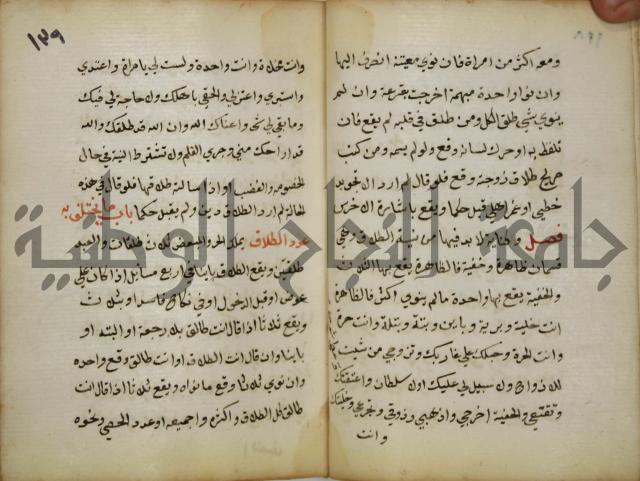 ومعه اكثر من امراة فان نوي معينة انصرف اليها
وان نوا واحدة مبهمة اخرجت بقرعة وان لم
ينوي شي طلق الكل ومن طلق في قلبه لم يقع فان
تلفظ به او حرك لسانه وقع ولو لم يسمعه ومن كتب
صريح طلاق زوجة وقع فلو قال لم ارد الا تجويد
خطي او غم اهلي قبل حكما ويقع باشارة الاخرس
فصل وكناية لا بد فيها من نية الطلاق وهي
قسمان ظاهرة وخفية فالظاهرة يقع بها الثلاث
والخفية يقع بها واحدة ما لم ينوي اكثر فالظاهرة
انت خلية وبرية وباين وبتة وبتلة وانت حرة
وانت الحرة وحبلك علي غاربك وتزوجي من شيت
للازواج ولا سبيل لي عليك او لا سلطان واعتقتك
وتقنعي والخفية اخرجي واذهبي وذوقي وتجرعي وخليتك
وانت
١٣٩
وانت مخلاة وانت واحدة ولست لي بامراة واعتدي
واستبري واعتزلي والحقي باهلك ولا حاجة لي فيك
وما بقي لي شي واغناك الله وان الله قد طلقك والله
قد اراحك مني وجري القلم ولا تشترط النية في حال
الخصومه والغضب او اذا سالته طلاقها فلو قال في هذه
الحالة لم ارد الطلاق دين ولم يقبل حكما باب ما يختلف به
عدد الطلاق يملك الحر والمبعض ثلاث طلقات والعبد
طلقتين ويقع الطلاق باينا في اربع مسايل اذا كان علي
عوض او قبل الدخول او في نكاح فاسد او بثلاث
ويقع ثلاثا اذا قال انت طالق بلا رجعة او البته او
باينا وان قال انت الطلاق او انت طالق وقع واحده
وان نوي ثلاثا وقع ما نواه ويقع ثلاثا اذا قال انت
طالق كل الطلاق واكثره او جميعه او عدد الحصي ونحوه
جامعة النجاح الوطنية